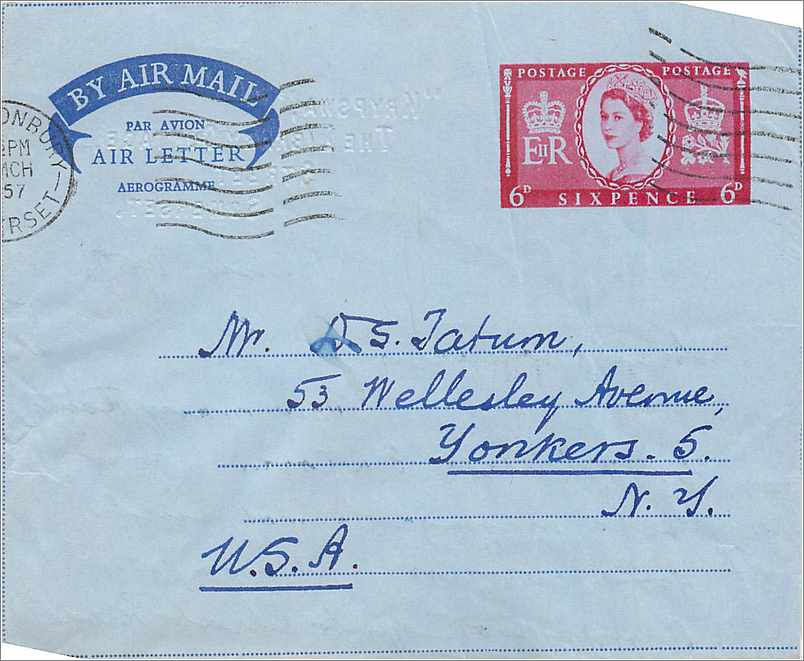 BY AIR MAIL
PAR AVION
AIR LETTER
AEROGRAMME
ONBURY
PM
MCH
57
RSET
POSTAGE POSTAGE
E II R
6D SIXPENCE 6D
Mr. D. S. Tatum,
53 Wellesley Avenue,
Yonkers. 5.
N. Y.
U.S.A.